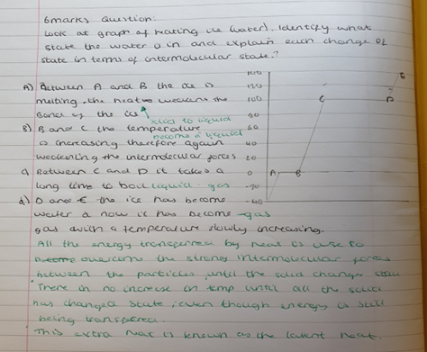 6marks Question:
Look at graph of heating ice (water). Identify what
state the water is in and explain each change of
state in terms of intermolecular state.?
A) Between A and B the ice is
melting, the heat weakens the
bonds of the ice
solid to liquid
B) B and C the temperature
become a liquid
is increasing therefore again
weakening the intermolecular forces
c) Between C and D it takes a
long time to boil liquid - gas
d) D and E the ice has become
water & now it has become -gas
gas with a temperature slowly increasing.
All the energy transferred by heat is use to
become overcome the strong intermolecular forces
between the particles, until the solid change state
There is no increase in temp until all the solid
has changed state, even though energy is still
being transferred.
This extra heat is known as the latent heat.
100
80
60
40
20
0
-20
-40
A
B
C
D
E